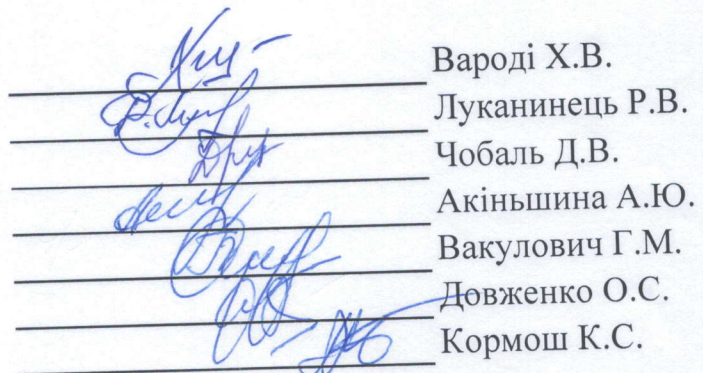 Вароді Х.В.
Луканинець Р.В.
Чобаль Д.В.
Акіньшина А.Ю.
Вакулович Г.М.
Довженко О.С.
Кормош К.С.